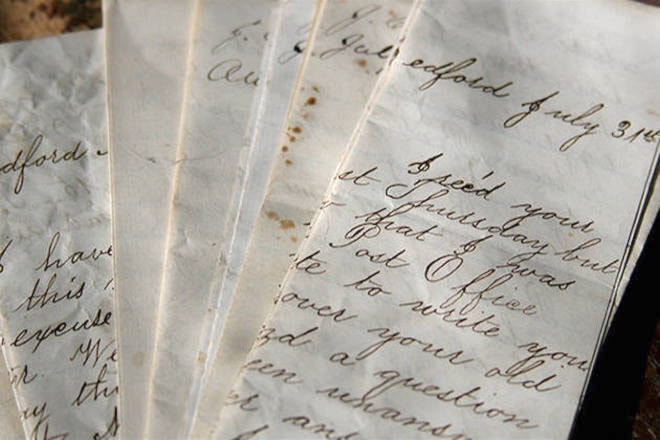 dford
I have
this
excuse
r. We
ay th
J.
Au
J.
Jul
edford July 31st
I rec'd your
st Thursday but
that I was
Post Office
te to write you
over your old
d a question
een unansw
er an